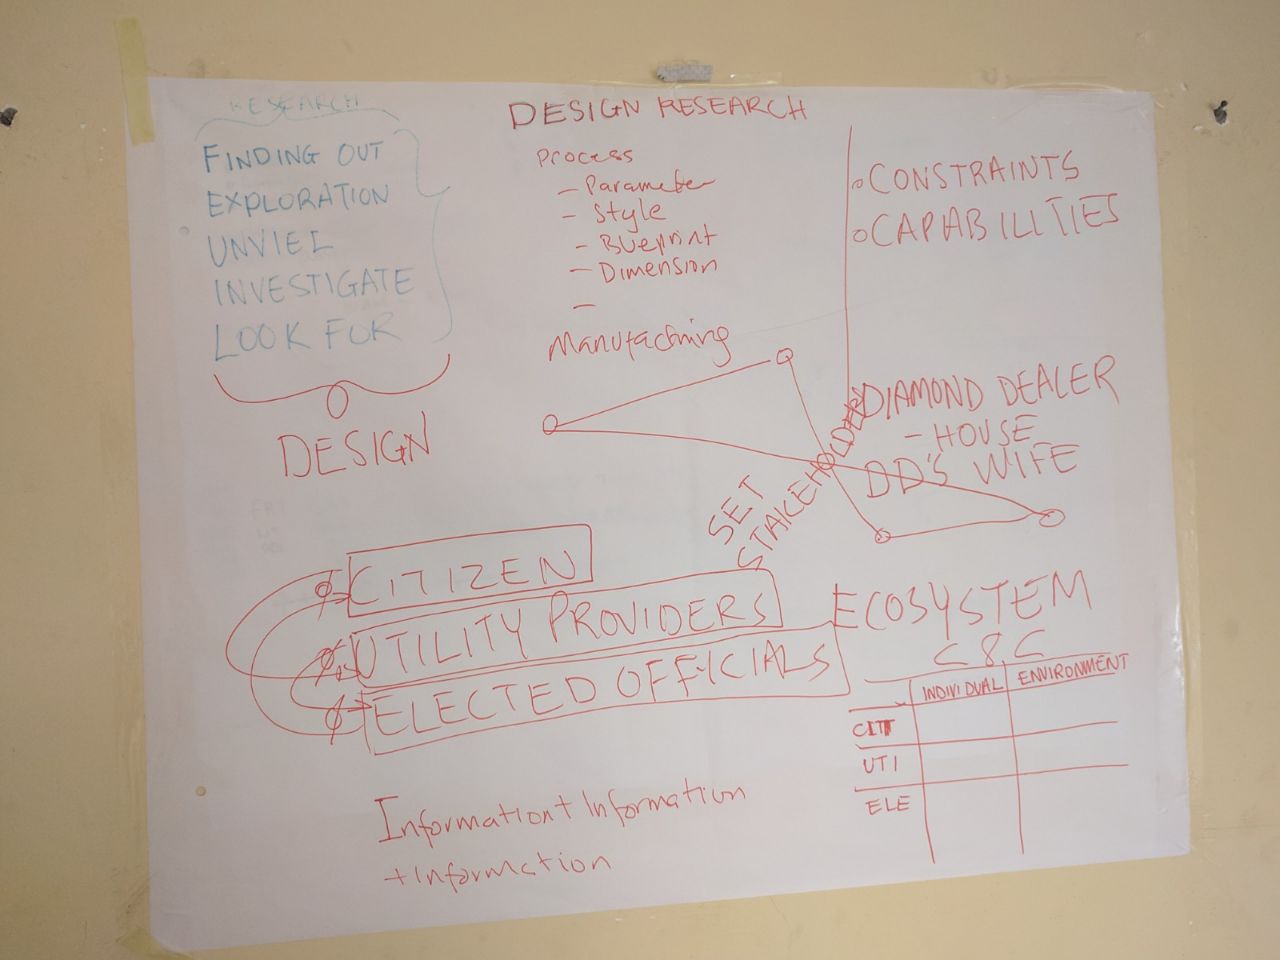 RESEARCH
FINDING OUT
EXPLORATION
UNVIEL
INVESTIGATE
LOOK FOR
DESIGN
DESIGN RESEARCH
Process
- Parameter
- Style
- Blueprint
- Dimension
-
Manufactring
CONSTRAINTS
CAPABILITIES
DIAMOND DEALER
- HOUSE
DD'S WIFE
SET
STAKEHOLDERS
CITIZEN
UTILITY PROVIDERS
ELECTED OFFICIALS
ECOSYSTEM
C & C
INDIVIDUAL ENVIRONMENT
CIT
UTI
ELE
Information + Information
+ Information